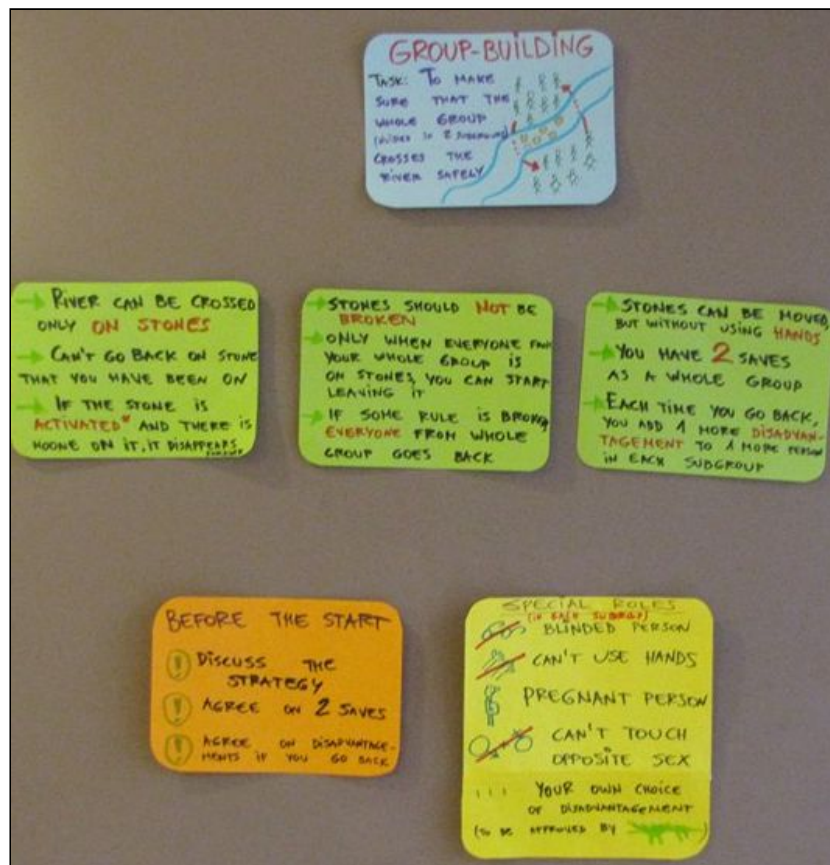 GROUP-BUILDING
TASK: TO MAKE
SURE THAT THE
WHOLE GROUP
(DIVIDED IN 2 SUBGROUPS)
CROSSES THE
RIVER SAFELY
→ RIVER CAN BE CROSSED
ONLY ON STONES
→ CAN'T GO BACK ON STONE
THAT YOU HAVE BEEN ON
→ IF THE STONE IS
ACTIVATED* AND THERE IS
NOONE ON IT, IT DISAPPEARS
→ STONES SHOULD NOT BE
BROKEN
→ ONLY WHEN EVERYONE FROM
YOUR WHOLE GROUP IS
ON STONES, YOU CAN START
LEAVING IT
→ IF SOME RULE IS BROKEN,
EVERYONE FROM WHOLE
GROUP GOES BACK
→ STONES CAN BE MOVED,
BUT WITHOUT USING HANDS
→ YOU HAVE 2 SAVES
AS A WHOLE GROUP
→ EACH TIME YOU GO BACK,
YOU ADD 1 MORE DISADVAN-
TAGEMENT TO 1 MORE PERSON
IN EACH SUBGROUP
BEFORE THE START
! DISCUSS THE
STRATEGY
! AGREE ON 2 SAVES
! AGREE ON DISADVANTAGE-
MENTS IF YOU GO BACK
SPECIAL ROLES
(IN EACH SUBGROUP)
BLINDED PERSON
CAN'T USE HANDS
PREGNANT PERSON
CAN'T TOUCH
OPPOSITE SEX
YOUR OWN CHOICE
OF DISADVANTAGEMENT
(TO BE APPROVED BY )